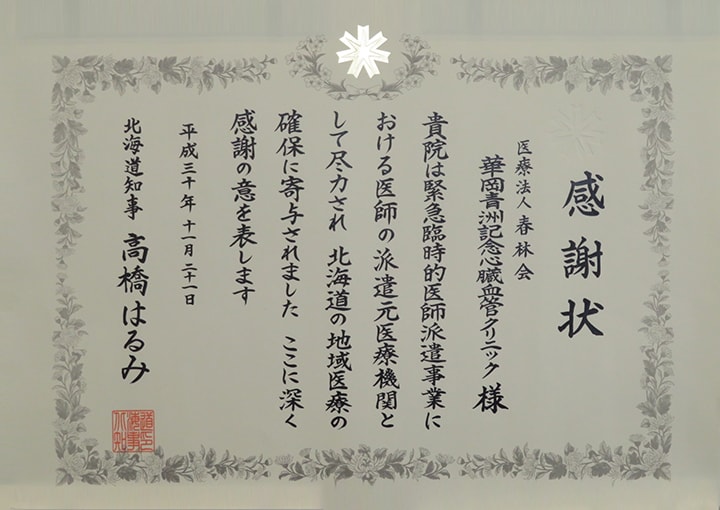 感謝状
医療法人 春林会
華岡青洲記念心臓血管クリニック 様
貴院は緊急臨時的医師派遣事業に
おける医師の派遣元医療機関と
して尽力され 北海道の地域医療の
確保に寄与されました ここに深く
感謝の意を表します
平成三十年 十一月 二十一日
北海道知事 高橋はるみ